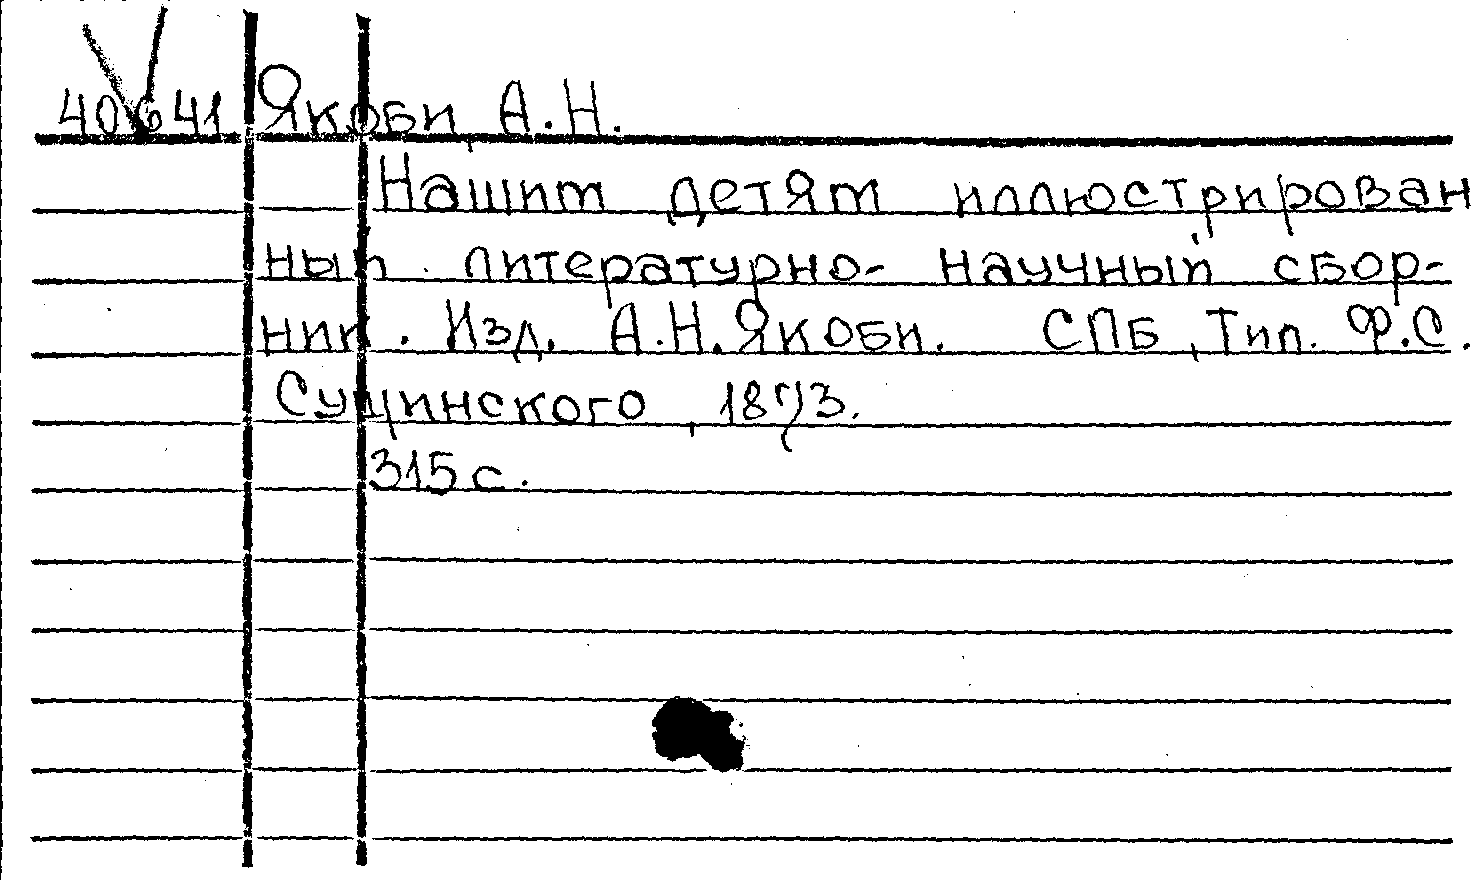 40641 Якоби А.Н.
Нашим детям иллюстрирован
ный литературно- научный сбор-
ник. Изд. А.Н.Якоби. СПБ, Тип. Ф.С.
Сущинского, 1873.
315 с.